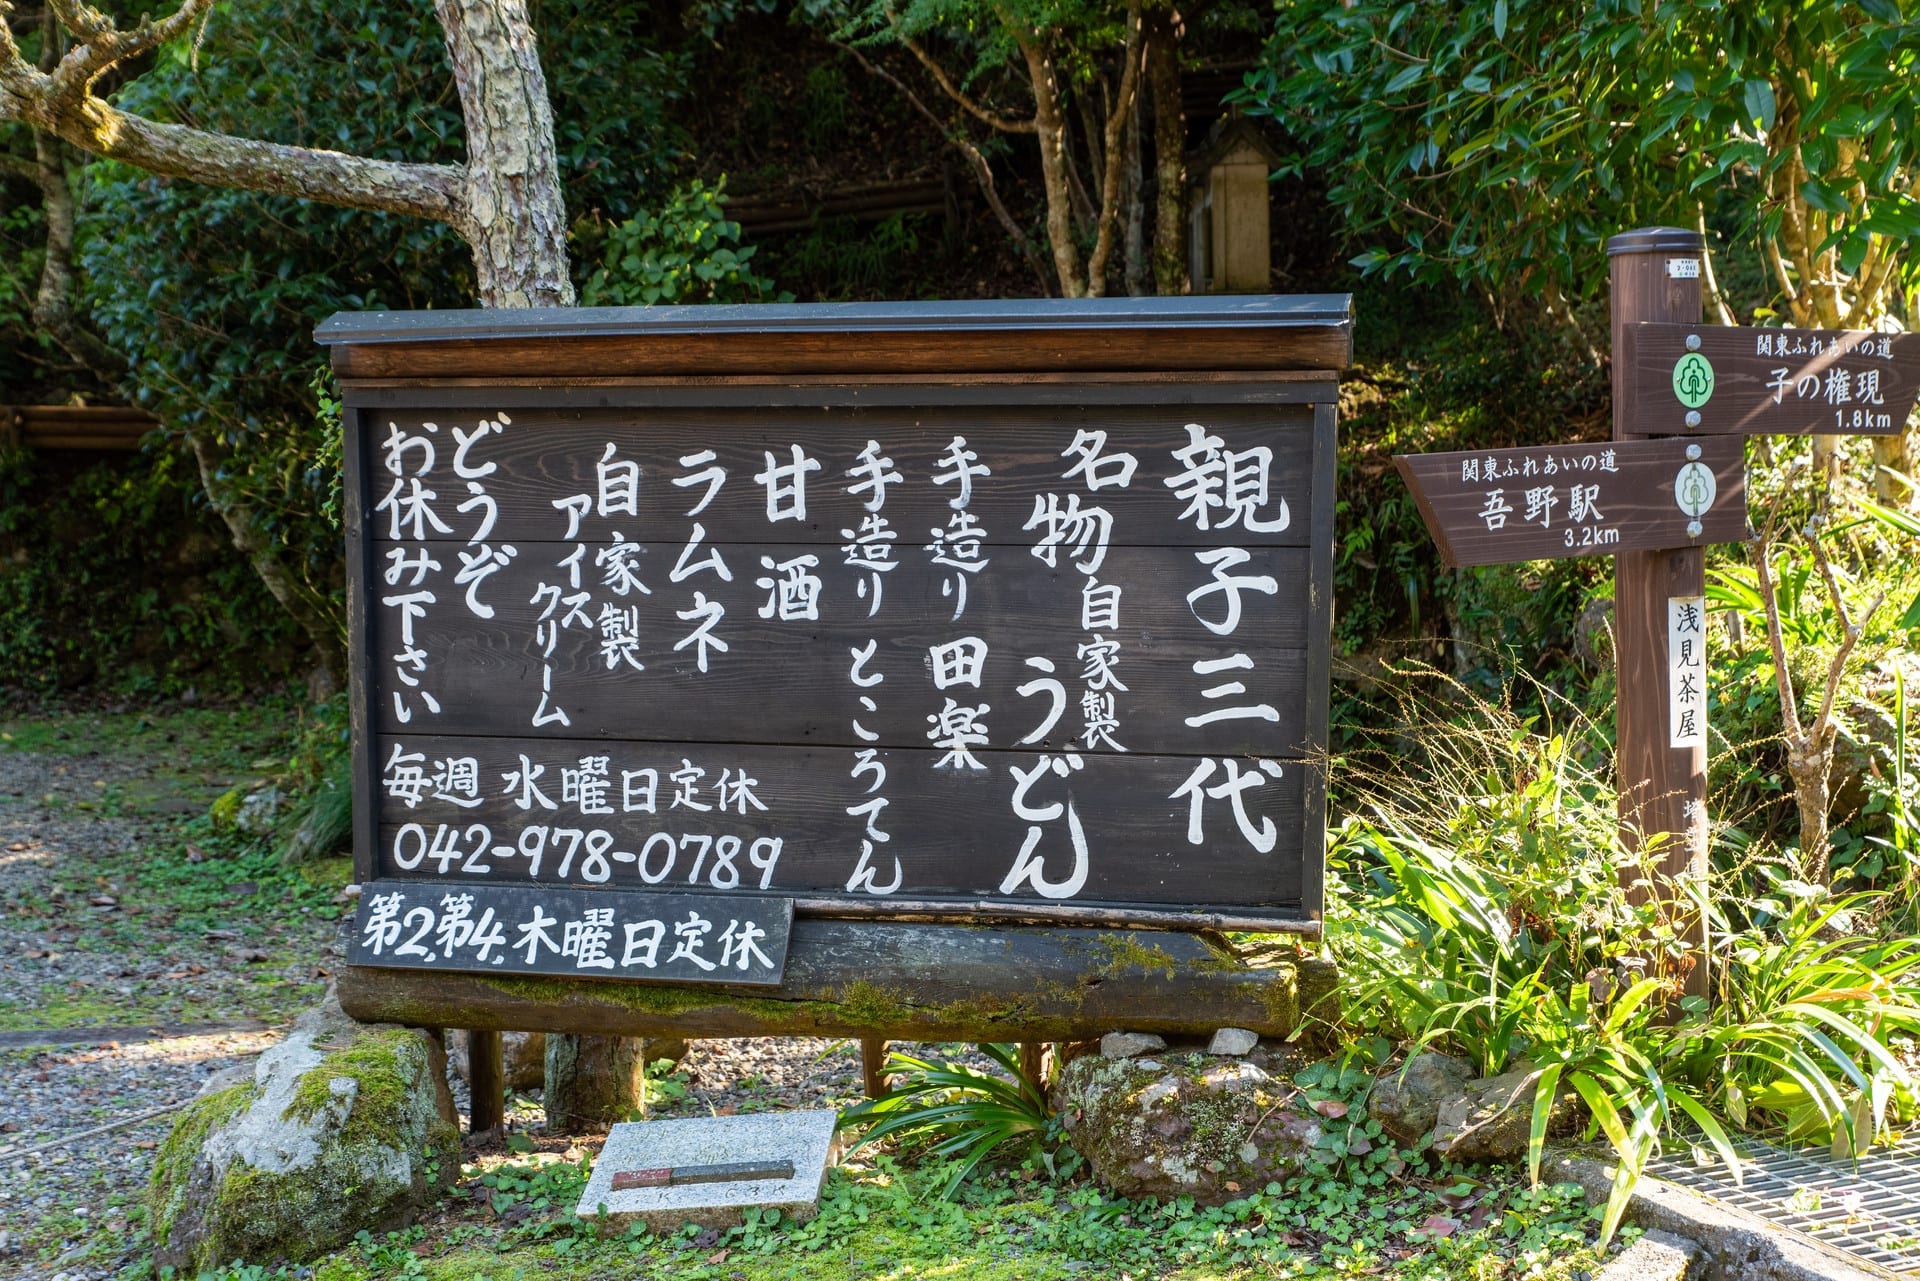 親子三代
名物自家製
うどん
手造り 田楽
手造り ところてん
甘酒
ラムネ
自家製
アイス
クリーム
どうぞ
お休み下さい
毎週 水曜日定休
042-978-0789
第2,第4,木曜日定休
関東ふれあいの道
子の権現
1.8km
関東ふれあいの道
吾野駅
3.2km
浅見茶屋